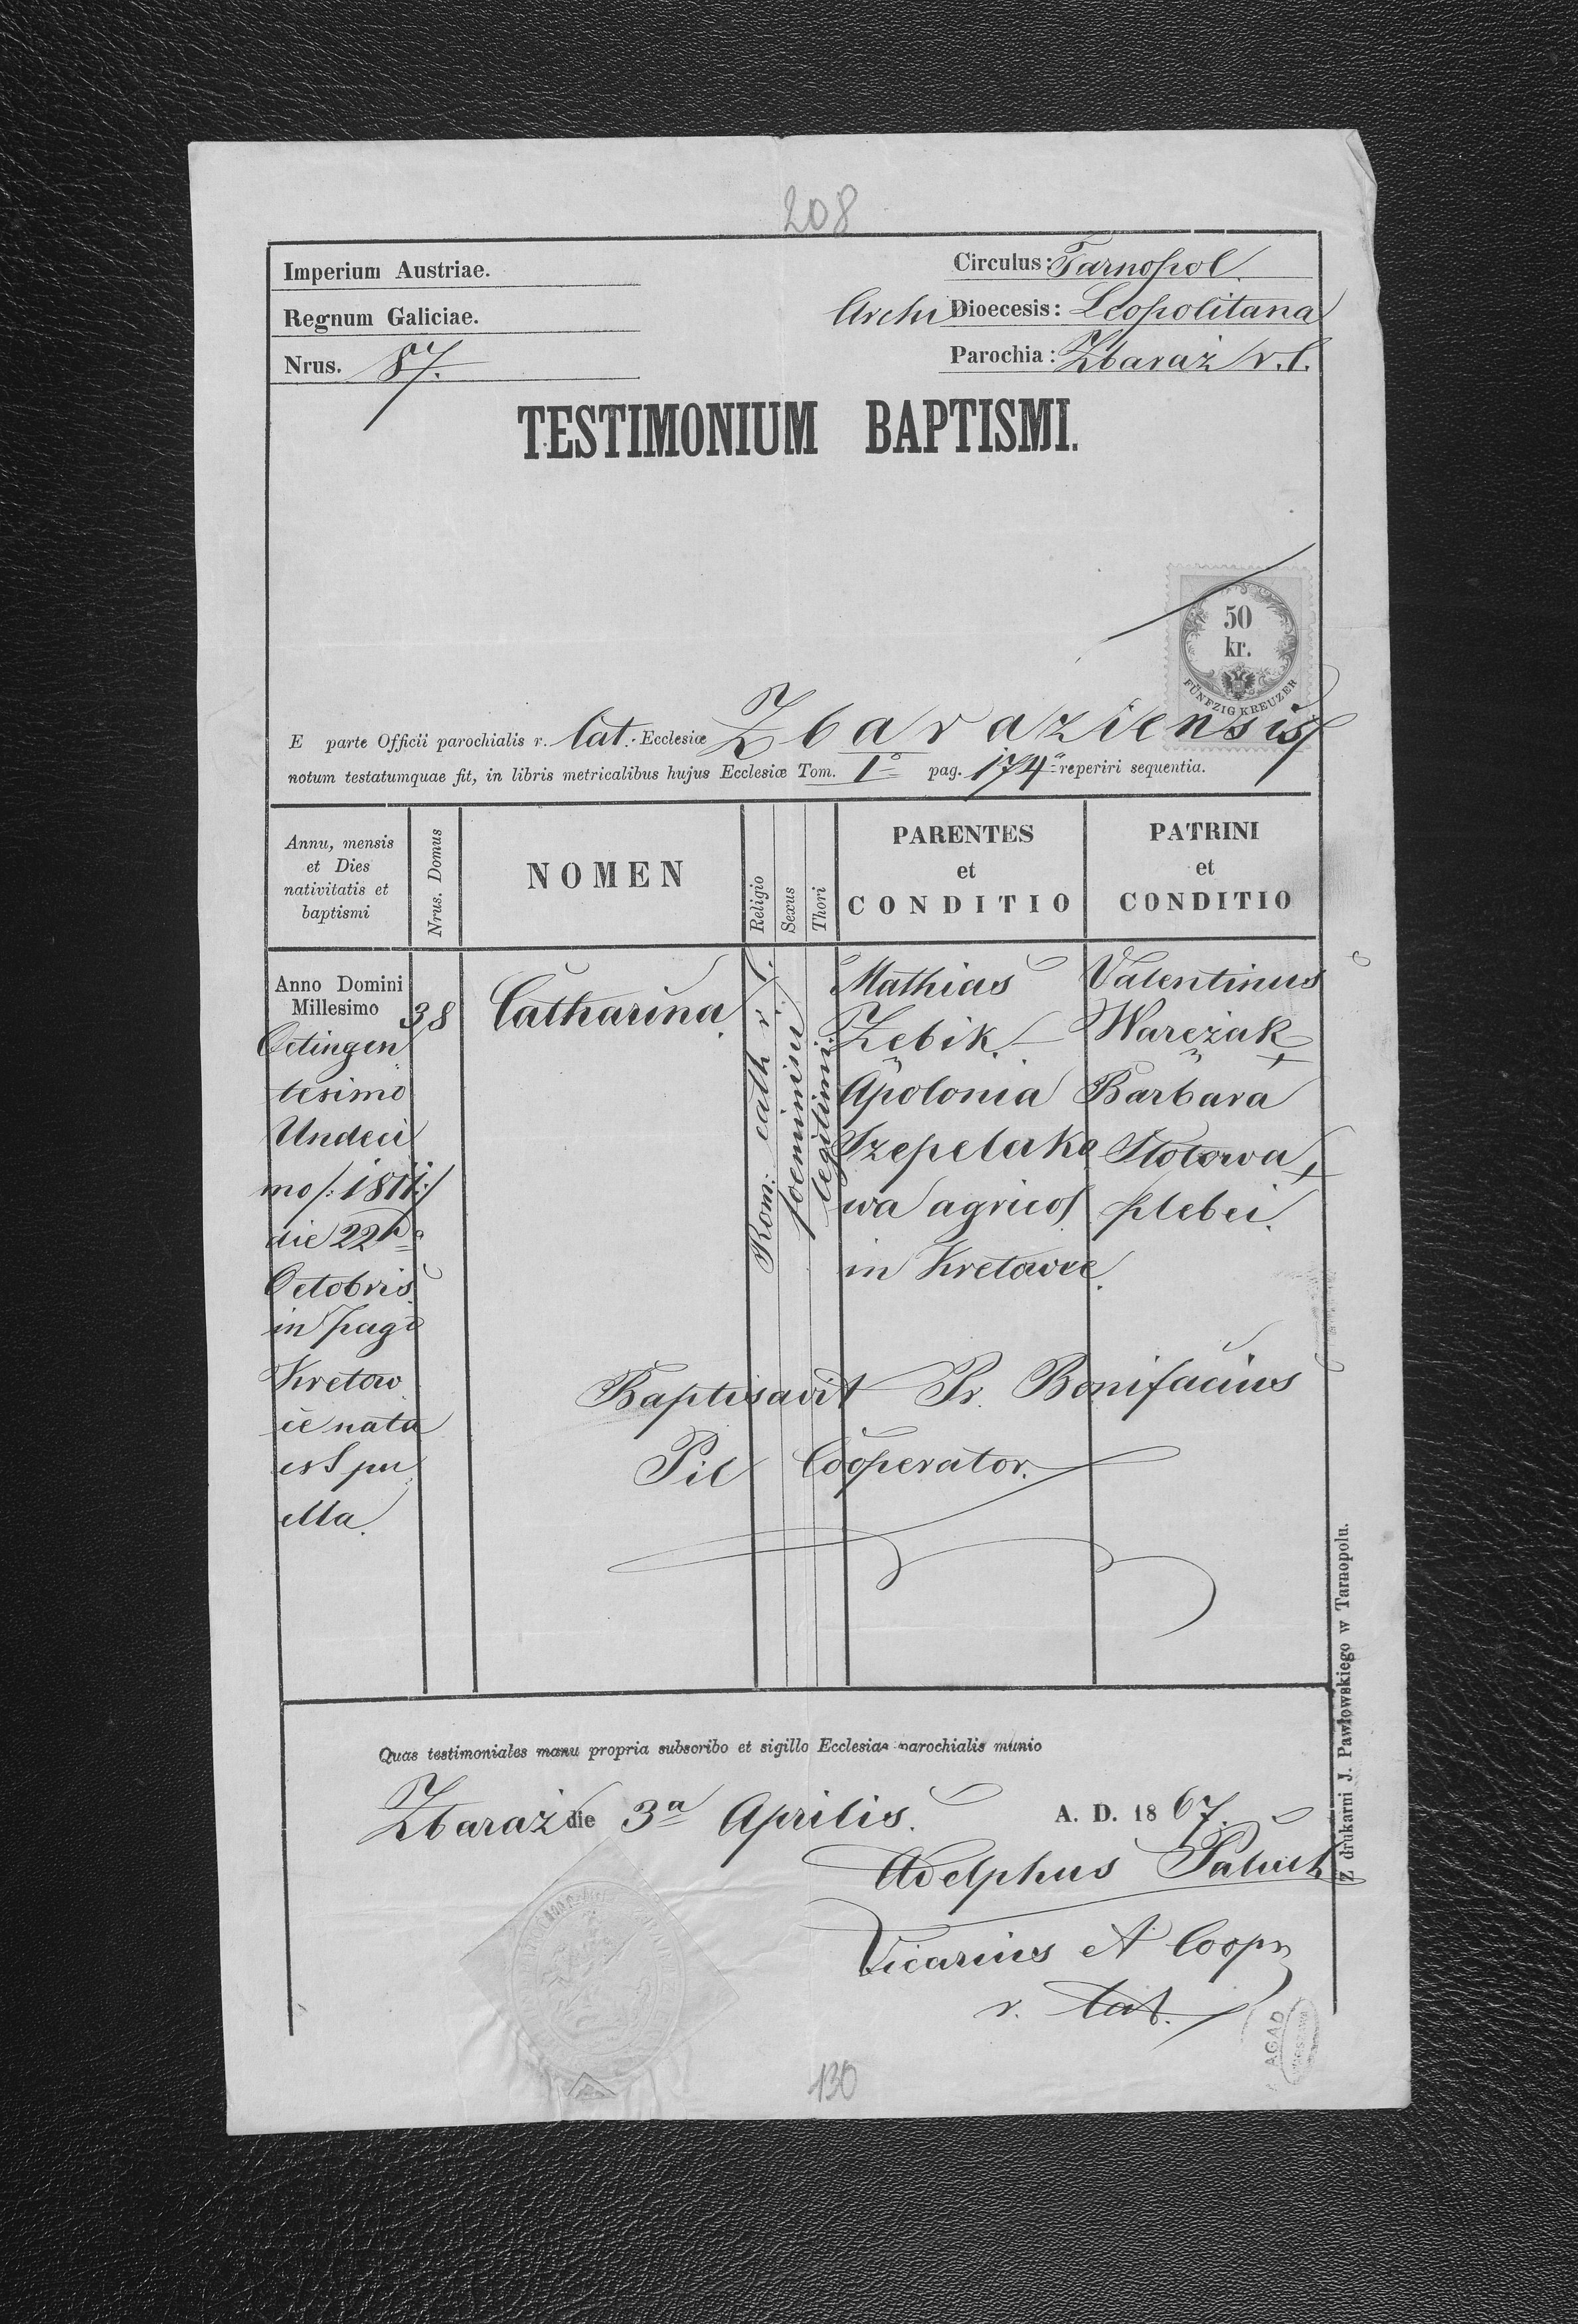 208
Imperium Austriae.
Circulus: Tarnopol.
Regnum Galiciae.
Archi Dioecesis: Leopolitana
Nrus. 87.
Parochia: Zbaraż r. l.
TESTIMONIUM BAPTISMI.
50
kr.
FÜNFZIG KREUZER
E parte Officii parochialis r. lat. Ecclesiæ Zbaraziensis
notum testatumquae fit, in libris metricalibus hujus Ecclesiæ Tom. I° pag. 174 reperiri sequentia.
Annu, mensis
et Dies
nativitatis et
baptismi
Nrus. Domus
NOMEN
Religio
Sexus
Thori
PARENTES
et
CONDITIO
PATRINI
et
CONDITIO
Anno Domini
Millesimo
Octingen
tesimo
Undeci
mo /: 1811 :/
die 22
Octobris
in pago
Kretow
ce nata
est pu
ella.
38
Catharina
Rom: cath r. l.
foeminini
legitimi.
Mathias
Zębik.
Apolonia
Szepelako
wa agricol
in Kretowce
Valentinus
Waręzak
Barbara
Stotowa
plebei.
Baptisavit Pr. Bonifacius
Pil Cooperator.
Quas testimoniales manu propria subscribo et sigillo Ecclesiae parochialis munio
Zbaraż die 3a Aprilis. A. D. 1867.
Adelphus Paluch
Vicarius et Coopr
r. lat.
Z drukarni J. Pawłowskiego w Tarnopolu.
AGAD
130